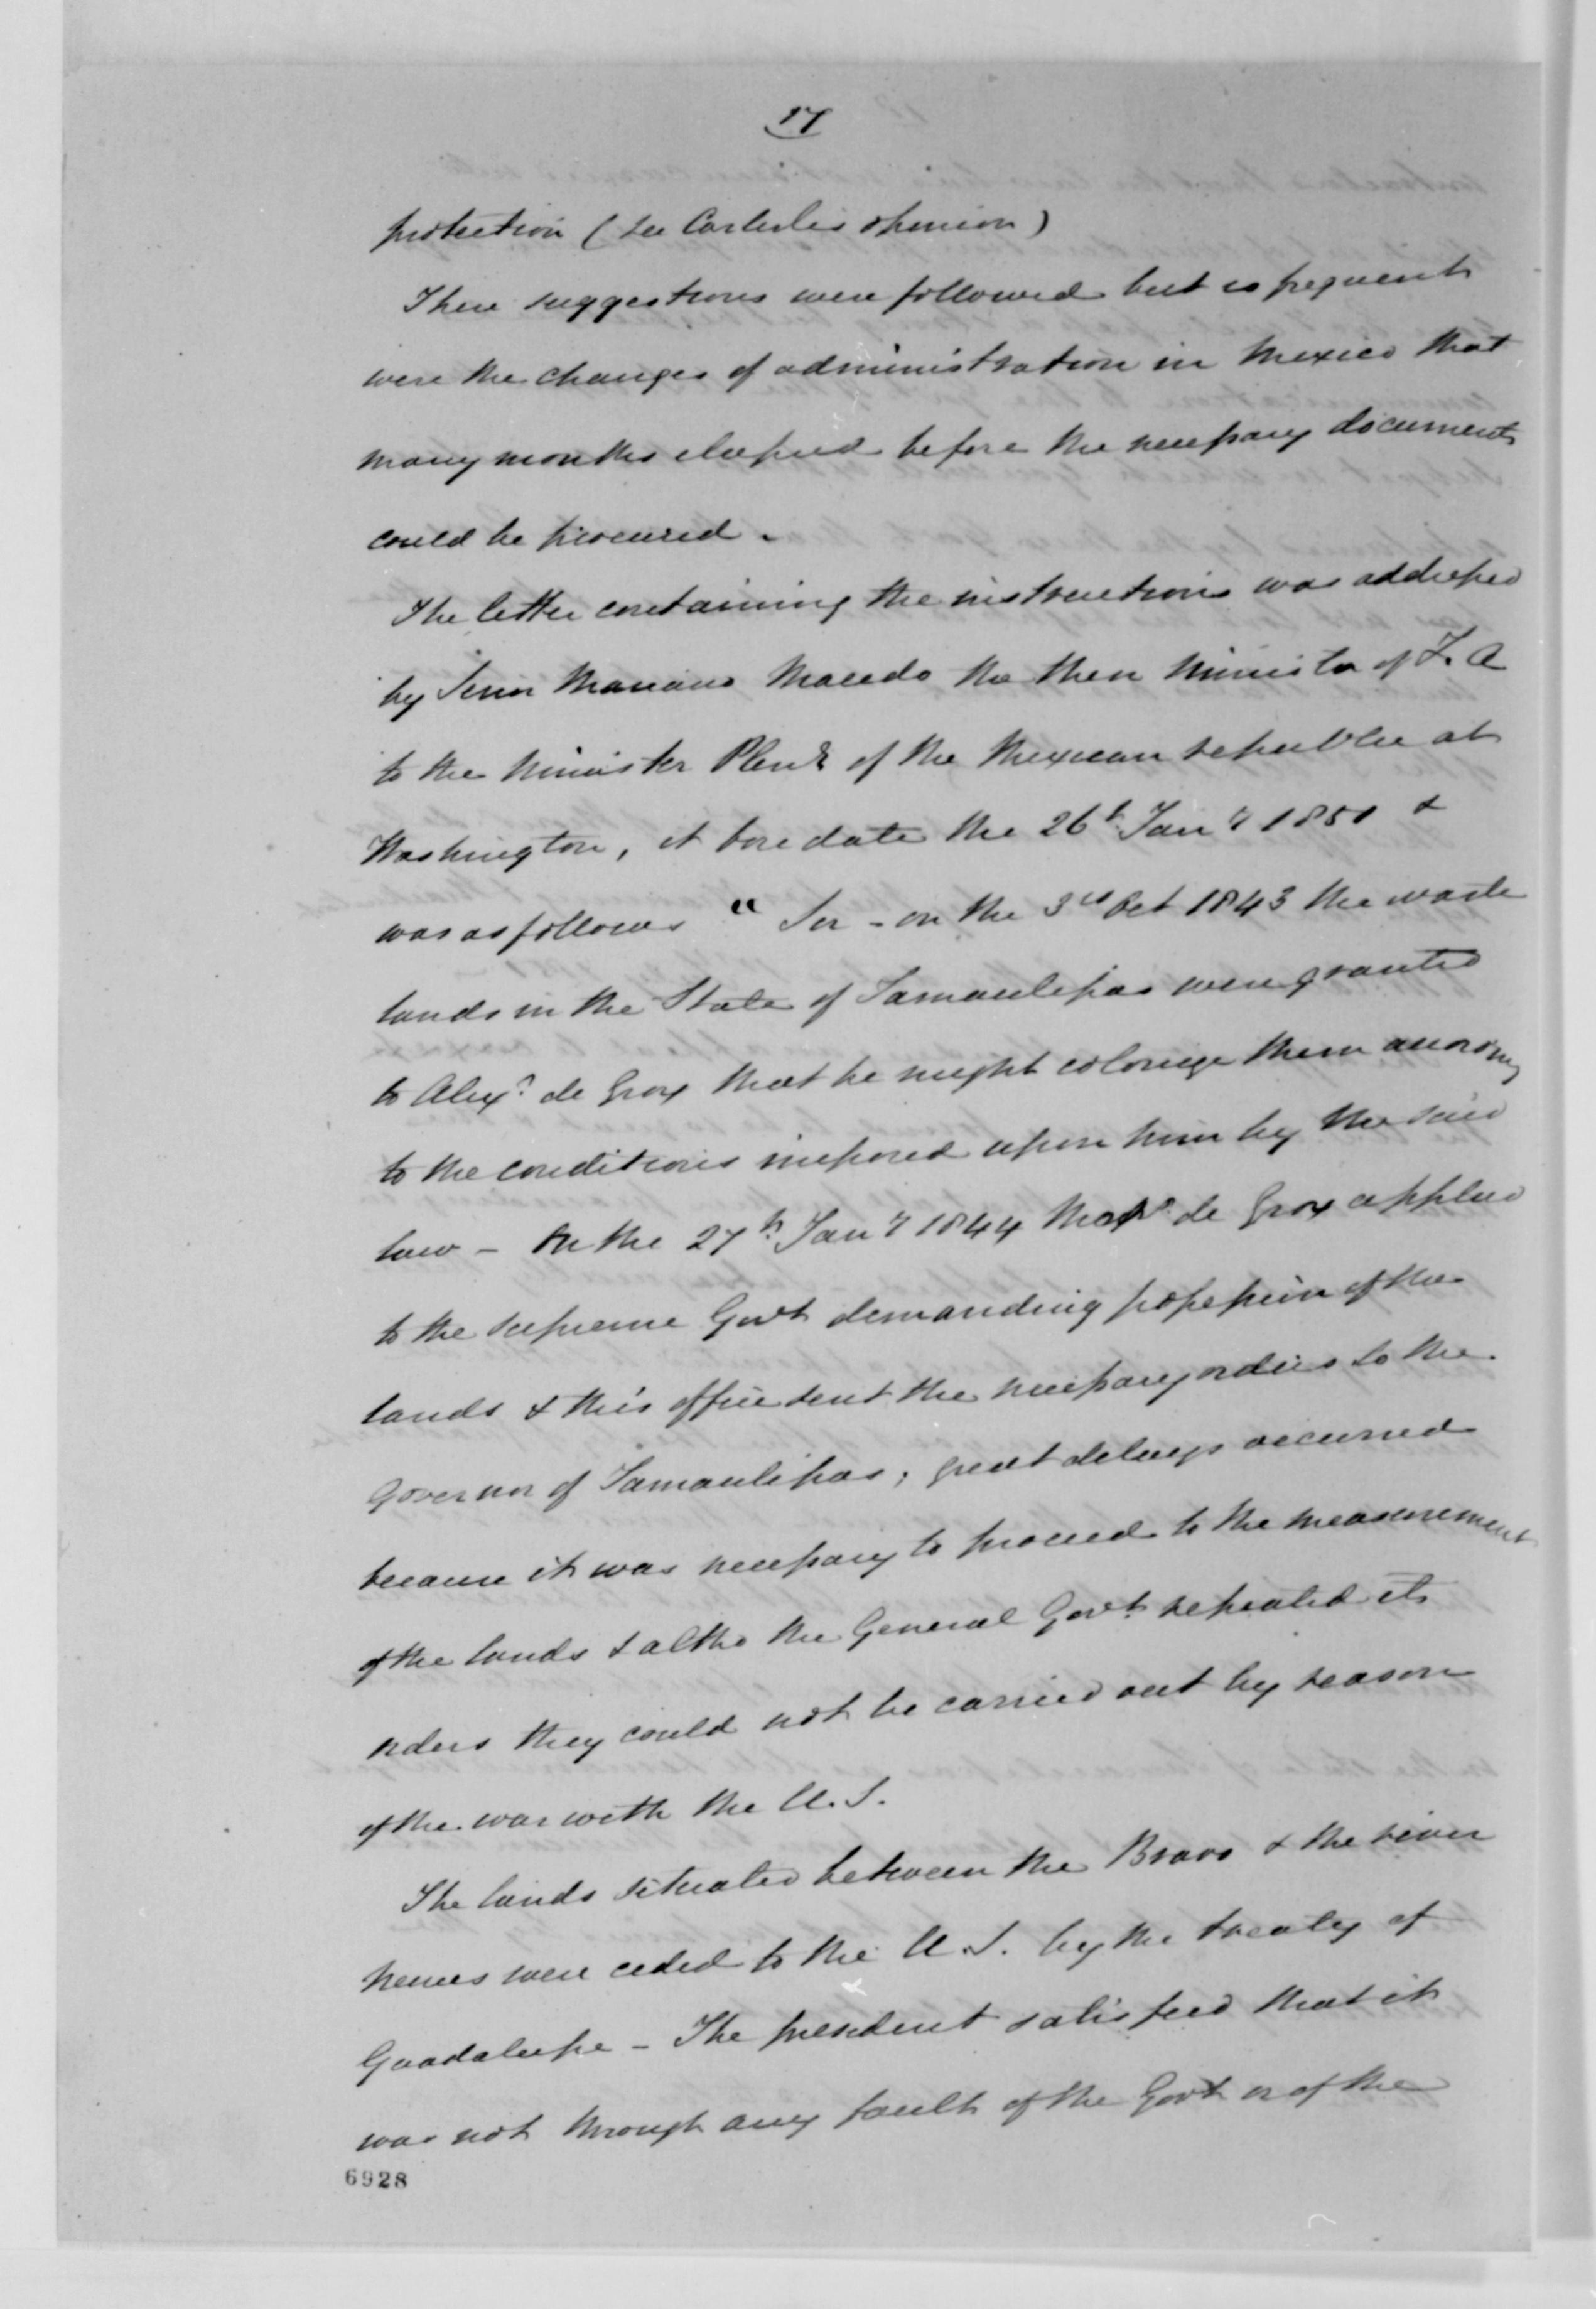 17
protection (see Carlisles opinion)
These suggestions were followed but so frequent
were the changes of administration in Mexico that
many months elapsed before the necessary documents
could be procured.
The letter containing the instructions was addressed
by Senor Mariano Macedo the then Minister of F. A
to the Minister Pleny of the Mexican republic at
Washington, it bore date the 26th Jany 1851 &
was as follows "Sir - on the 3rd Oct 1843 the waste
lands in the State of Tamaulipas were granted
to Alexr de Grox that he might colonize them according
to the conditions imposed upon him by the said
law - On the 27th Jany 1844 de Grox applied
to the supreme Govt demanding possession of the
lands & this office sent the necessary orders to the
Governor of Tamaulipas; great delays occurred
because it was necessary to proceed to the measurement
of the lands & altho the General Govt repeated its
orders they could not be carried out by reason
of the war with the U. S.
The lands situated between the Bravo & the river
nueces were ceded to the U. S. by the treaty of
Guadalupe - The president satisfied that it
was not through any fault of the Govt or of the
6928